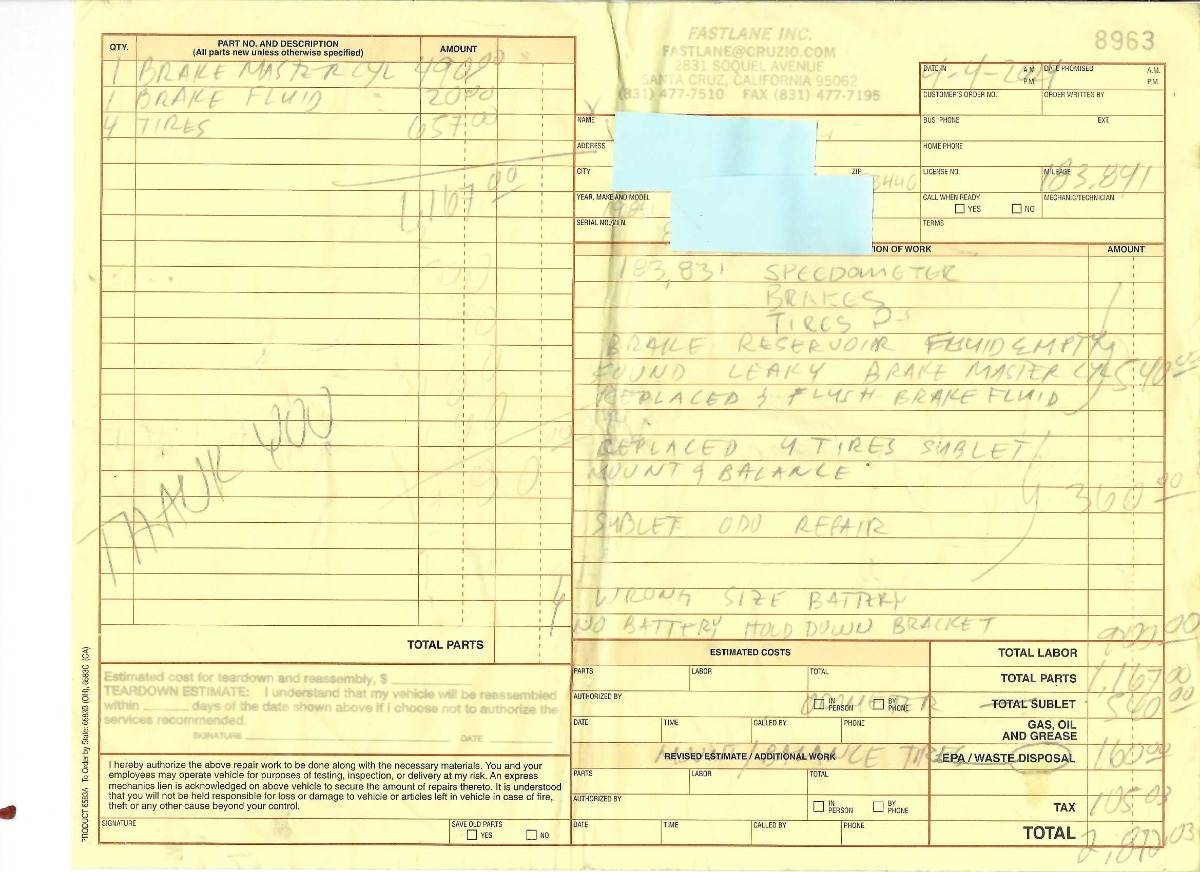 FASTLANE INC.
FASTLANE@CRUZIO.COM
2831 SOQUEL AVENUE
SANTA CRUZ, CALIFORNIA 95062
(831) 477-7510 FAX (831) 477-7195
8963
QTY. PART NO. AND DESCRIPTION (All parts new unless otherwise specified) AMOUNT
1 BRAKE MASTER CYL 490.00
1 BRAKE FLUID 20.00
4 TIRES 657.00
1,167.00
THANK YOU
TOTAL PARTS
Estimated cost for teardown and reassembly, $
TEARDOWN ESTIMATE: I understand that my vehicle will be reassembled
within days of the date shown above if I choose not to authorize the
services recommended.
SIGNATURE DATE
I hereby authorize the above repair work to be done along with the necessary materials. You and your
employees may operate vehicle for purposes of testing, inspection, or delivery at my risk. An express
mechanics lien is acknowledged on above vehicle to secure the amount of repairs thereto. It is understood
that you will not be held responsible for loss or damage to vehicle or articles left in vehicle in case of fire,
theft or any other cause beyond your control.
SIGNATURE SAVE OLD PARTS
YES NO
PRODUCT 6583A To Order by State: 6583B (OR), 6583C (CA)
DATE IN A.M. P.M. DATE PROMISED A.M. P.M.
CUSTOMER'S ORDER NO. ORDER WRITTEN BY
NAME BUS. PHONE EXT.
ADDRESS HOME PHONE
CITY ZIP LICENSE NO. MILEAGE 183,841
YEAR, MAKE AND MODEL CALL WHEN READY YES NO MECHANIC/TECHNICIAN
SERIAL NO./V.I.N. TERMS
ION OF WORK AMOUNT
183,831 SPEEDOMETER
BRAKES
TIRES
BRAKE RESERVOIR FLUID EMPTY
FOUND LEAKY BRAKE MASTER CYL 540.00
REPLACED & FLUSH BRAKE FLUID
REPLACED 4 TIRES SUBLET
MOUNT & BALANCE
360.00
SUBLET ODO REPAIR
WRONG SIZE BATTERY
NO BATTERY HOLD DOWN BRACKET
ESTIMATED COSTS
PARTS LABOR TOTAL
AUTHORIZED BY IN PERSON BY PHONE
DATE TIME CALLED BY PHONE
REVISED ESTIMATE / ADDITIONAL WORK
BALANCE TIRES
PARTS LABOR TOTAL
AUTHORIZED BY IN PERSON BY PHONE
DATE TIME CALLED BY PHONE
TOTAL LABOR 900.00
TOTAL PARTS 1,167.00
TOTAL SUBLET 540.00
GAS, OIL AND GREASE
EPA / WASTE DISPOSAL 160.00
TAX 105.03
TOTAL 2,872.03